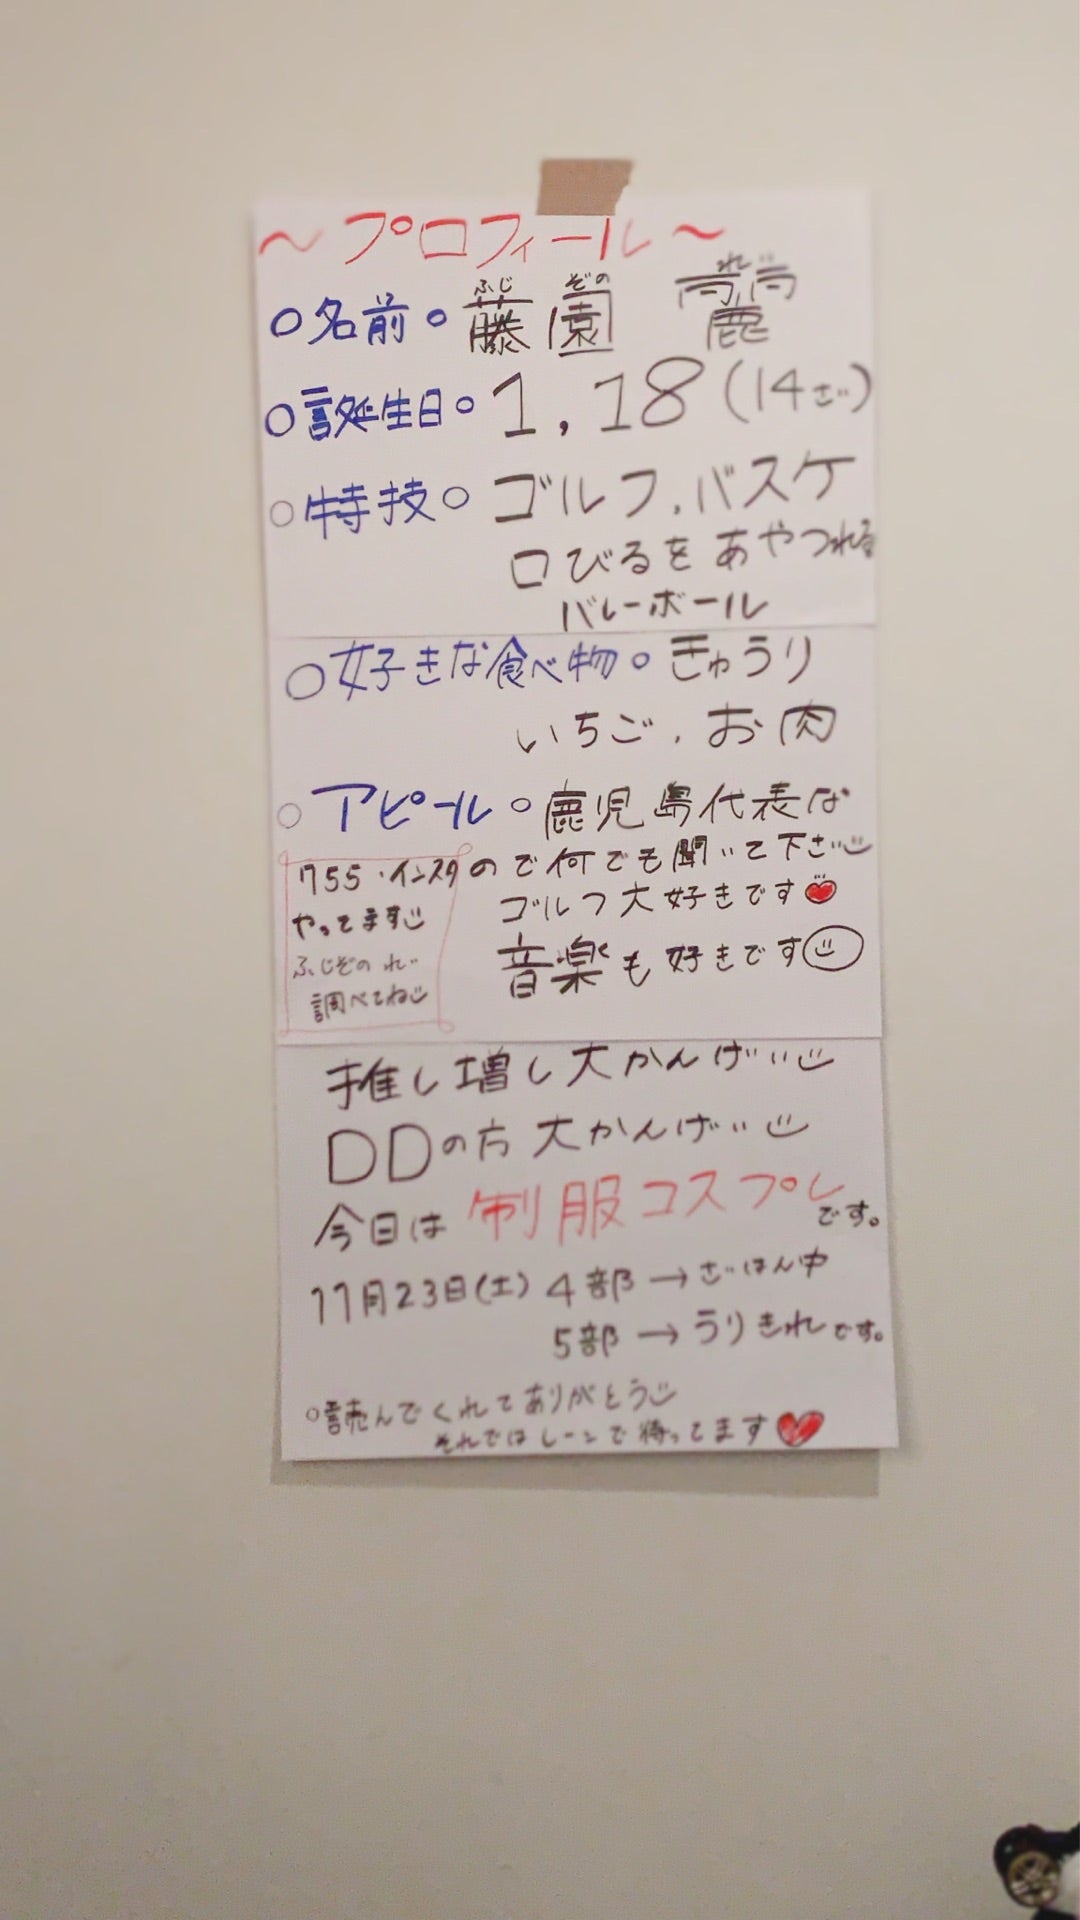 ～プロフィール～
ふじ ぞの れい
○名前○ 藤園 麗
○誕生日○ 1,18(14さい)
○特技○ ゴルフ,バスケ
口びるをあやつれる
バレーボール
○好きな食べ物○ きゅうり
いちご,お肉
○アピール○ 鹿児島代表な
ので何でも聞いて下さい
ゴルフ大好きです♥
音楽も好きです
755・インスタ
やってます
ふじぞの れい
調べてね
推し増し大かんげい
DDの方 大かんげい
今日は 制服コスプレです。
11月23日(土) 4部→ごはん中
5部→うりきれです。
○読んでくれてありがとう
それではレーンで待ってます♥